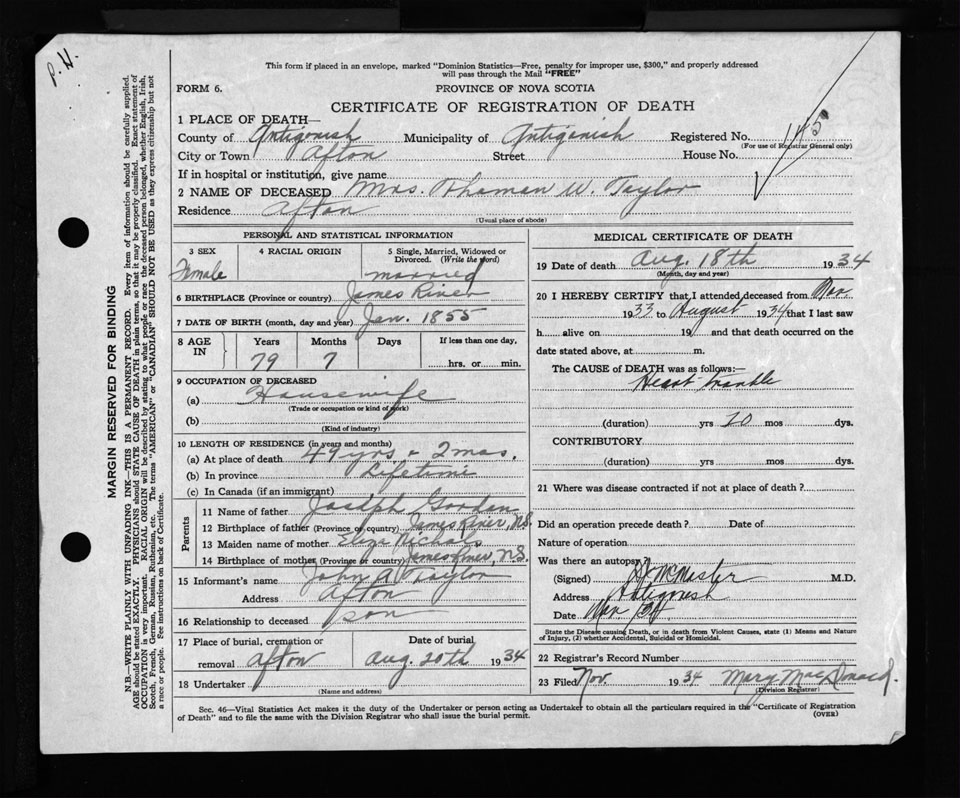 P. H.
This form if placed in an envelope, marked "Dominion Statistics—Free, penalty for improper use, $300," and properly addressed
will pass through the Mail "FREE"
FORM 6. PROVINCE OF NOVA SCOTIA
CERTIFICATE OF REGISTRATION OF DEATH
1 PLACE OF DEATH—
County of Antigonish Municipality of Antigonish Registered No. 145
(For use of Registrar General only)
City or Town Afton Street House No.
If in hospital or institution, give name
2 NAME OF DECEASED Mrs. Thoman W. Taylor
Residence Afton
(Usual place of abode)
PERSONAL AND STATISTICAL INFORMATION
3 SEX 4 RACIAL ORIGIN 5 Single, Married, Widowed or
Divorced. (Write the word)
Female married
6 BIRTHPLACE (Province or country) James River
7 DATE OF BIRTH (month, day and year) Jan. 1855
8 AGE IN Years Months Days If less than one day,
79 7 hrs. or min.
9 OCCUPATION OF DECEASED
(a) Housewife
(Trade or occupation or kind of work)
(b)
(Kind of industry)
10 LENGTH OF RESIDENCE (in years and months)
(a) At place of death 49 yrs - 2 mos.
(b) In province Lifetime
(c) In Canada (if an immigrant)
Parents
11 Name of father Joseph
12 Birthplace of father (Province or country) James River, N.S.
13 Maiden name of mother Eliza Nichols
14 Birthplace of mother (Province or country) James River, N.S.
15 Informant's name John A. Taylor
Address Afton
16 Relationship to deceased son
17 Place of burial, cremation or Date of burial
removal Afton Aug. 20th 1934
18 Undertaker
(Name and address)
MEDICAL CERTIFICATE OF DEATH
19 Date of death Aug. 18th 1934
(Month, day and year)
20 I HEREBY CERTIFY that I attended deceased from Nov.
1933 to August 1934 that I last saw
h alive on 19 and that death occurred on the
date stated above, at m.
The CAUSE of DEATH was as follows:—
Heart trouble
(duration) yrs 10 mos dys.
CONTRIBUTORY
(duration) yrs mos dys.
21 Where was disease contracted if not at place of death?
Did an operation precede death? Date of
Nature of operation
Was there an autopsy?
(Signed) McMaster M.D.
Address Antigonish
Date Nov
State the Disease causing Death, or in death from Violent Causes, state (1) Means and Nature
of Injury, (2) whether Accidental, Suicidal or Homicidal.
22 Registrar's Record Number
23 Filed Nov. 1934 Mary MacDonald.
(Division Registrar)
Sec. 46—Vital Statistics Act makes it the duty of the Undertaker or person acting as Undertaker to obtain all the particulars required in the "Certificate of Registration
of Death" and to file the same with the Division Registrar who shall issue the burial permit. (OVER)
MARGIN RESERVED FOR BINDING
N.B.—WRITE PLAINLY WITH UNFADING INK—THIS IS A PERMANENT RECORD. Every item of information should be carefully supplied.
AGE should be stated EXACTLY. PHYSICIANS should STATE CAUSE OF DEATH in plain terms, so that it may be properly classified. Exact statement of
OCCUPATION is very important. RACIAL ORIGIN will be described by stating to what people or race the deceased person belonged, whether English, Irish,
Scotch, French, German, Russian, Ruthenian, etc. The terms "AMERICAN" or "CANADIAN" SHOULD NOT BE USED as they express citizenship but not
a race or people. See instructions on back of Certificate.